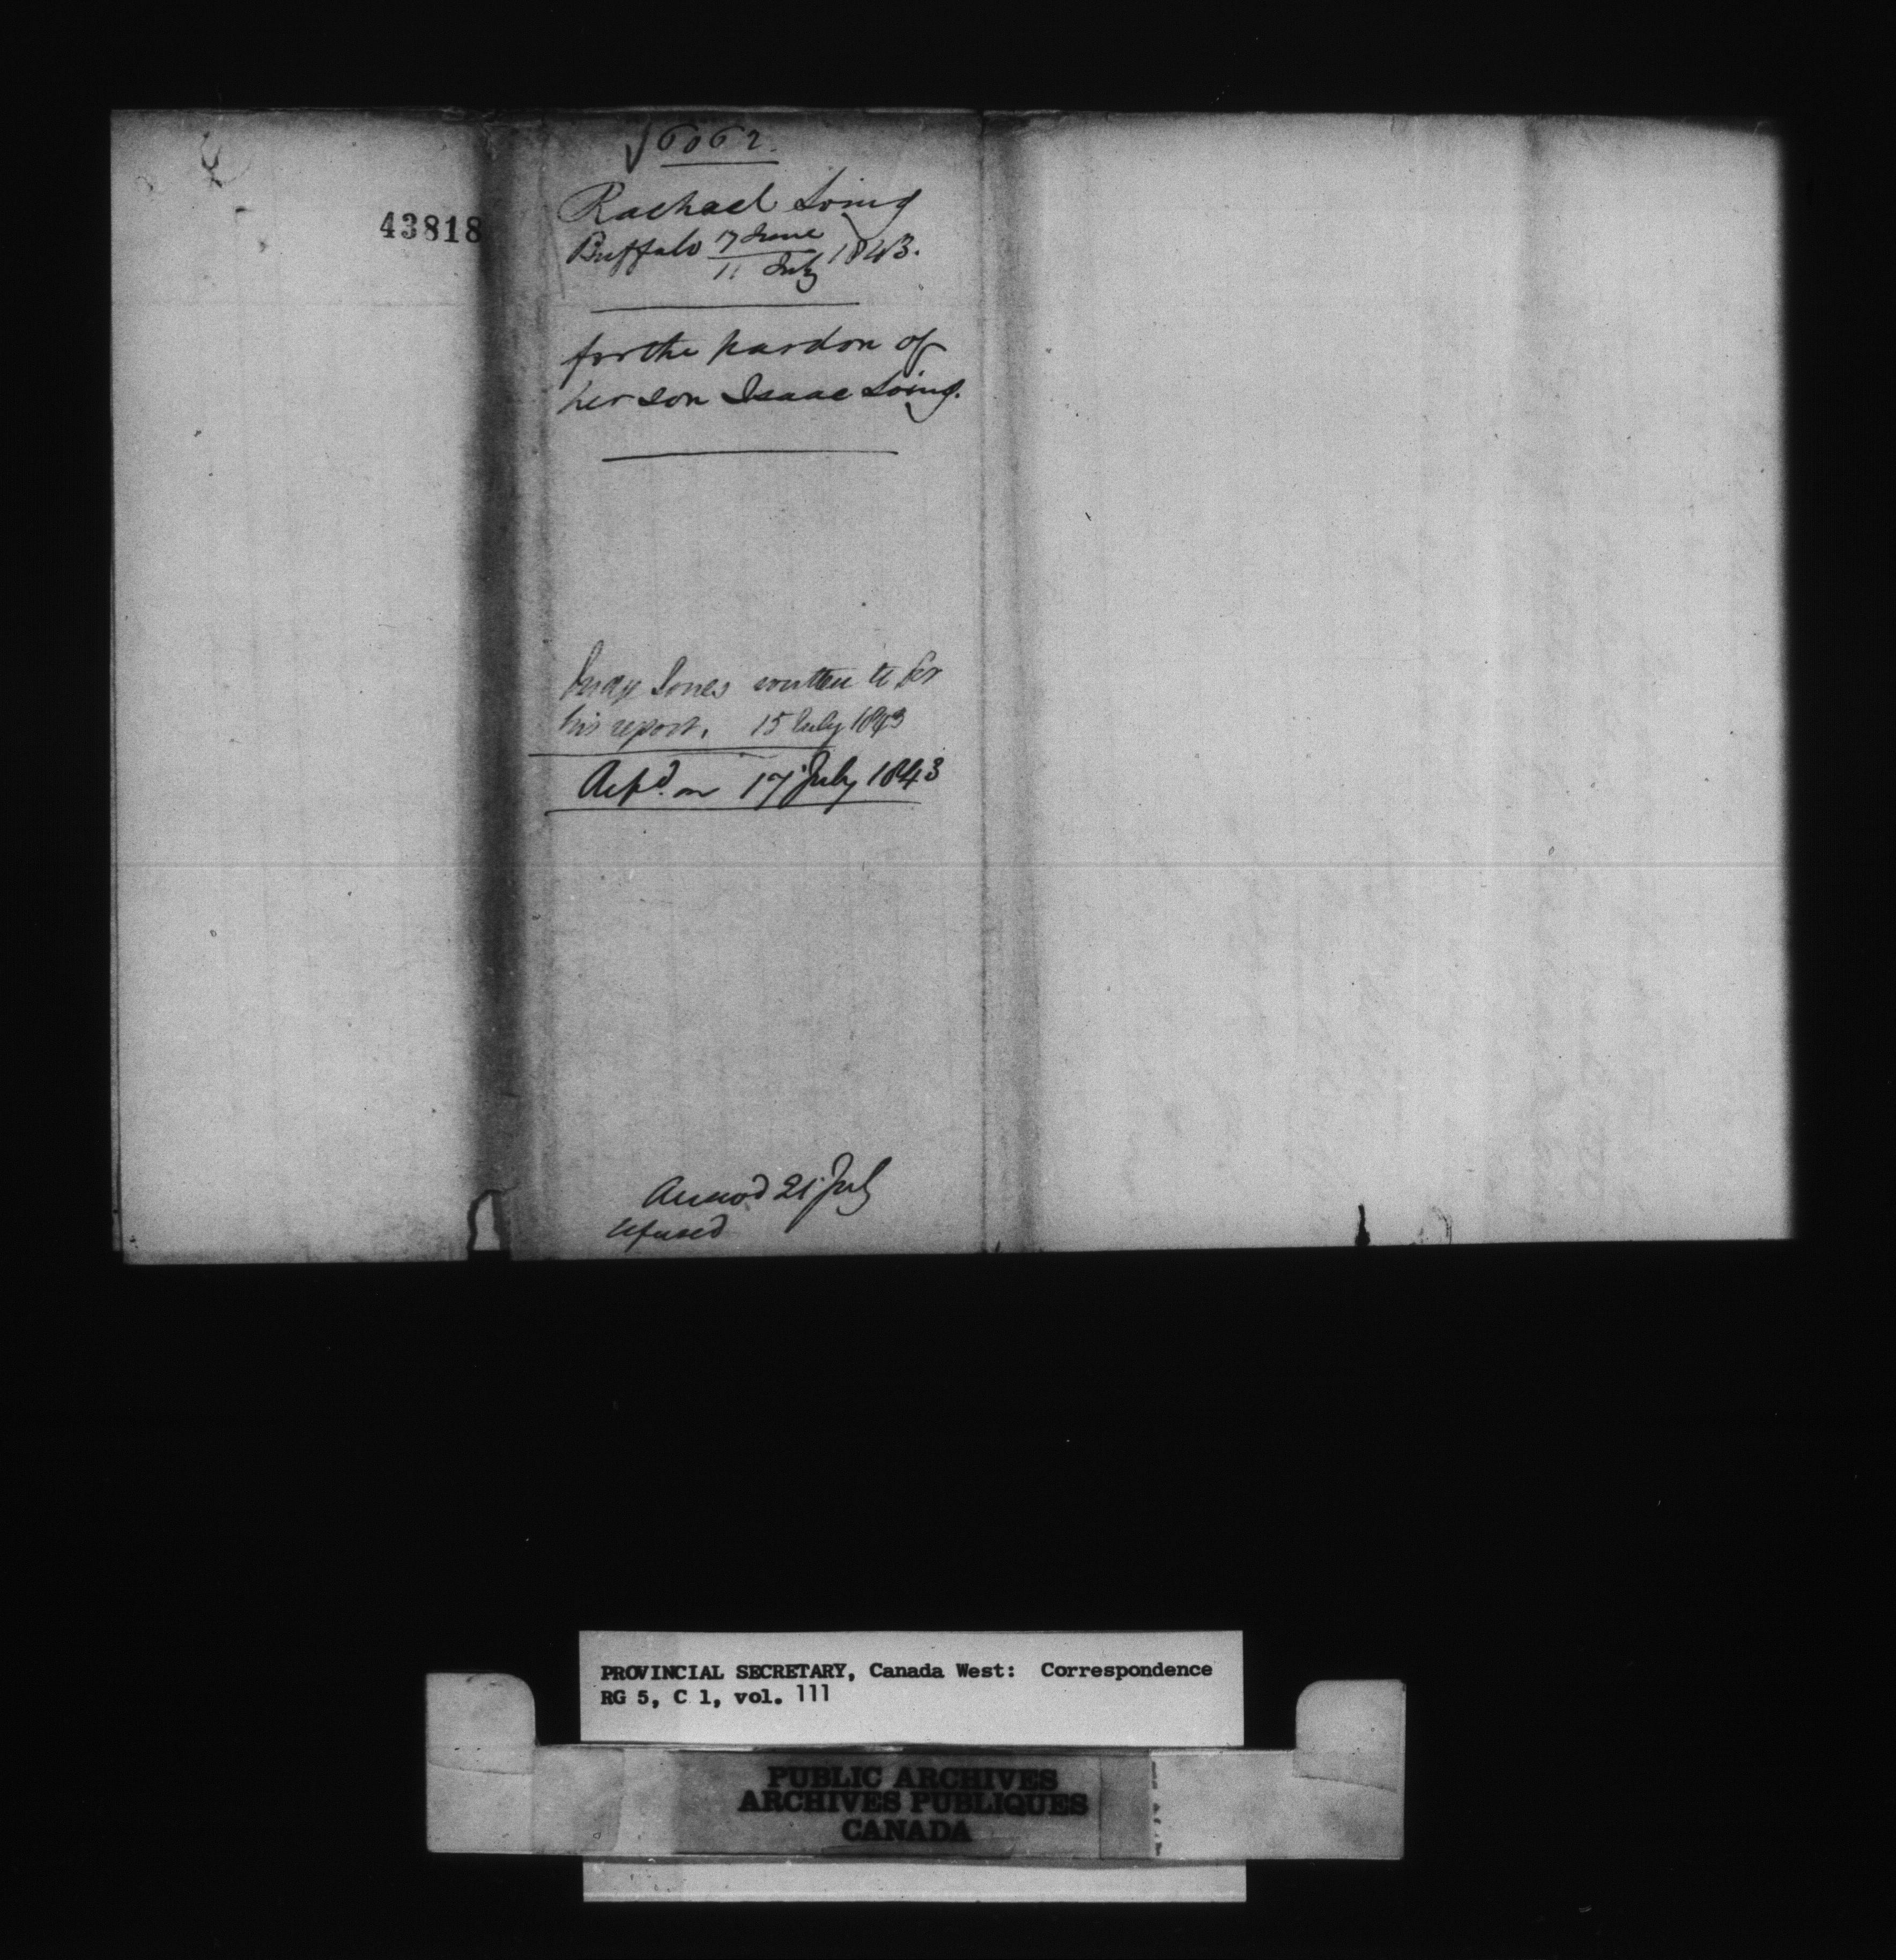 43818
√6062.
Rachael Loing
Buffalo 17 June
11 July 1843.
for the pardon of
her son Isaac Loing.
Judge Jones written to for
his report. 15 July 1843
on 17 July 1843
Answd 21 July
refused
PROVINCIAL SECRETARY, Canada West: Correspondence
RG 5, C 1, vol. 111
PUBLIC ARCHIVES
ARCHIVES PUBLIQUES
CANADA